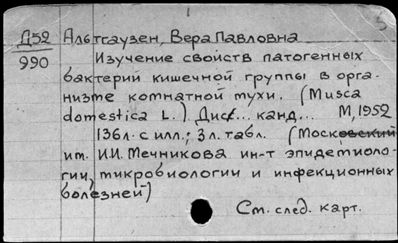 Д52 Альтгаузен, Вера Павловна
990 Изучение свойств патогенных
бактерии кишечной группы в орга-
низме комнатной мухи. (Musca
domestica L.) Дис... канд... М, 1952
136л. с илл.; 3л. табл. (Московский
им. И.И. Мечникова ин-т эпидемиоло-
гии, микробиологии и инфекционных
болезней)
См. след. карт.